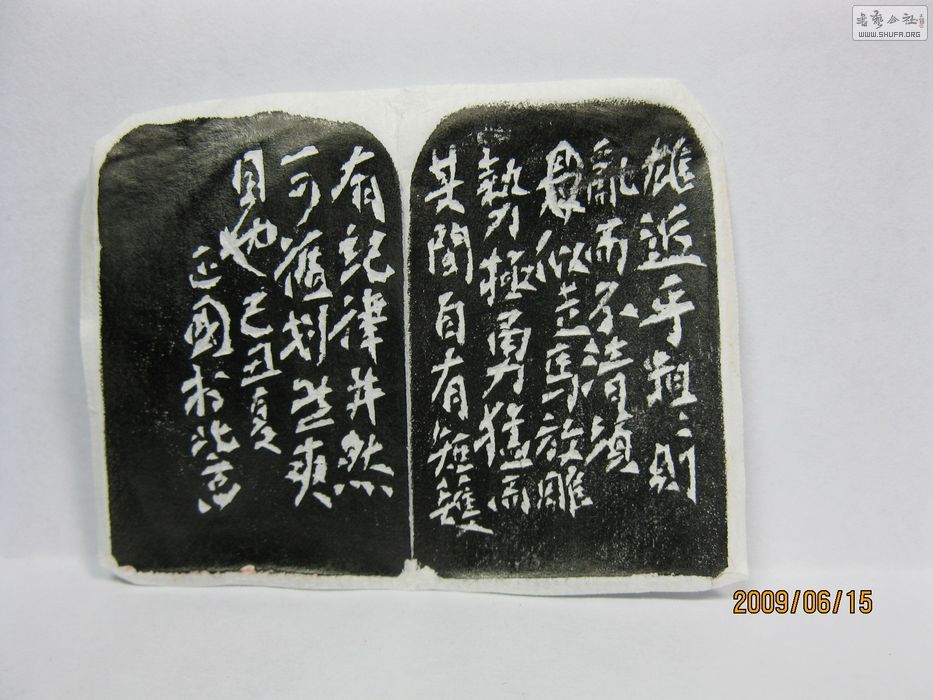 雄近乎粗〻則
亂而不清須
具似走馬放雕
勢力極勇猛而
其間自有矩矱
有紀律井然
可划然爽
目也己丑夏
正國於北京
書藝公社
WWW.SHUFA.ORG
2009/06/15